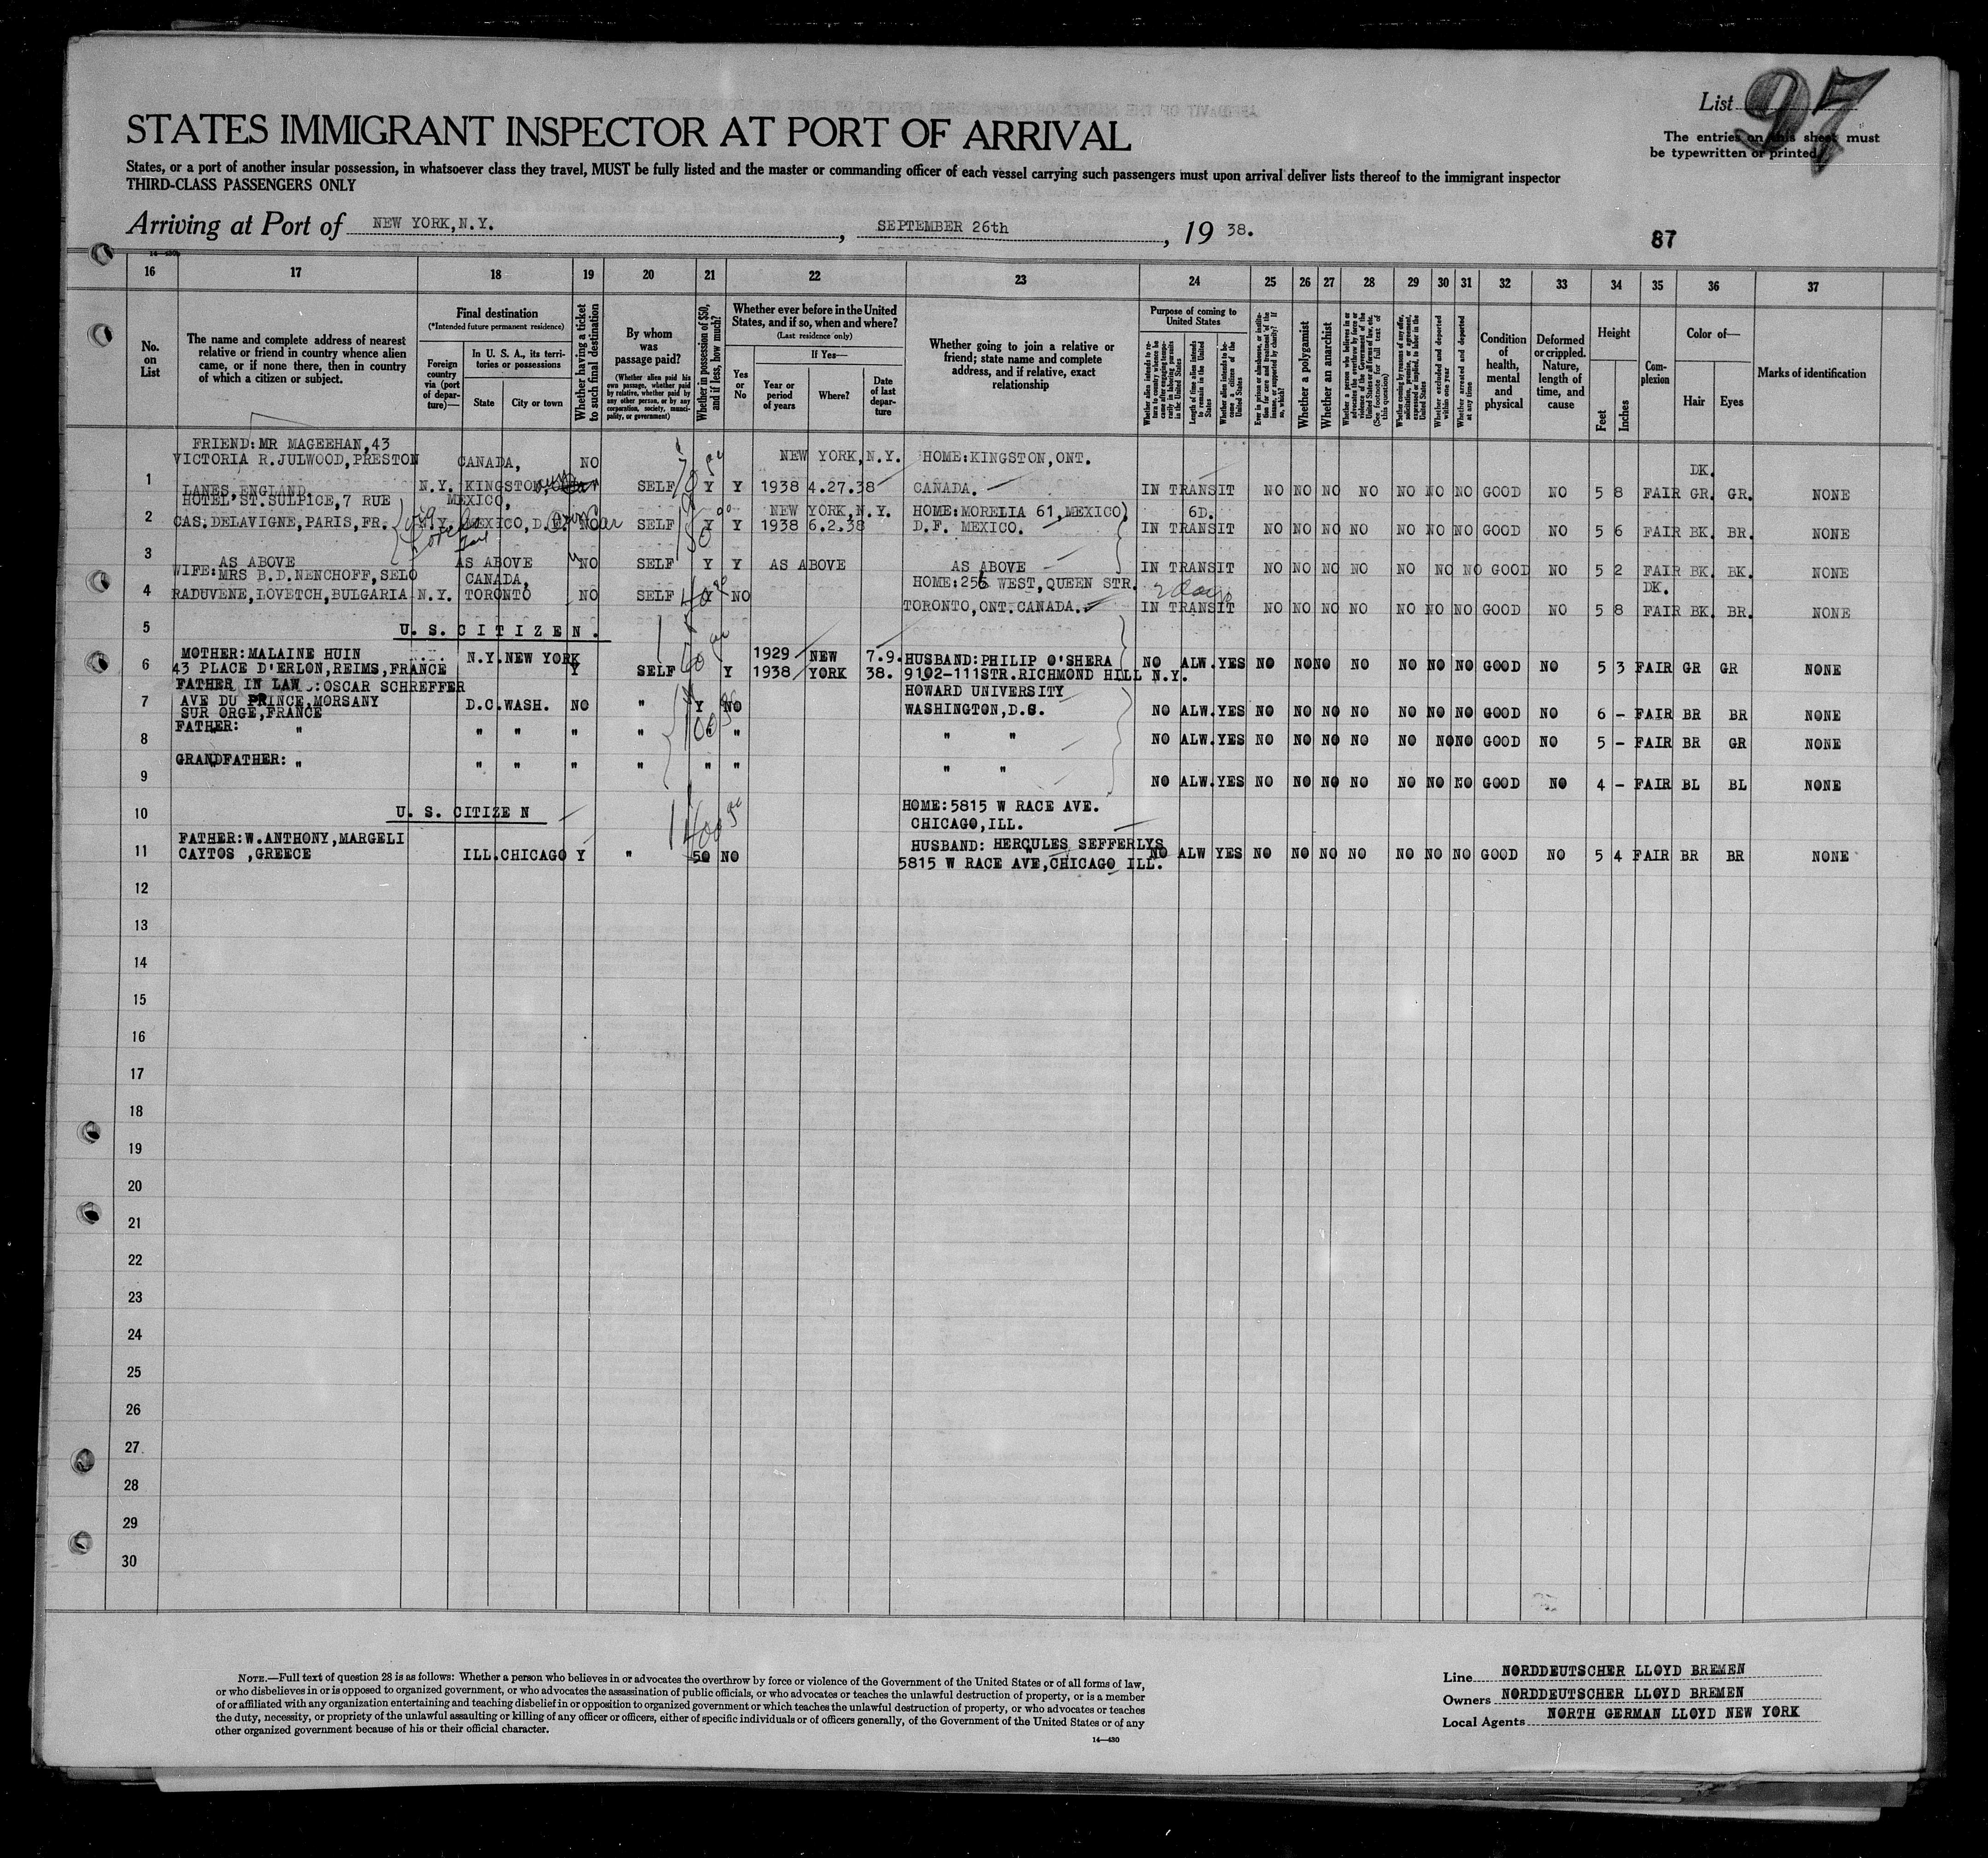 List 97
The entries on this sheet must
be typewritten or printed
STATES IMMIGRANT INSPECTOR AT PORT OF ARRIVAL
States, or a port of another insular possession, in whatsoever class they travel, MUST be fully listed and the master or commanding officer of each vessel carrying such passengers must upon arrival deliver lists thereof to the immigrant inspector
THIRD-CLASS PASSENGERS ONLY
Arriving at Port of NEW YORK,N.Y. , SEPTEMBER 26th , 19 38.
87
16 17 18 19 20 21 22 23 24 25 26 27 28 29 30 31 32 33 34 35 36 37
No. on List
The name and complete address of nearest relative or friend in country whence alien came, or if none there, then in country of which a citizen or subject.
Final destination
(*Intended future permanent residence)
Foreign country via (port of departure)—
In U. S. A., its territories or possessions
State
City or town
Whether having a ticket to such final destination
By whom was passage paid?
(Whether alien paid his own passage, whether paid by relative, whether paid by any other person, or by any corporation, society, municipality, or government)
Whether in possession of $50, and if less, how much?
Whether ever before in the United States, and if so, when and where?
(Last residence only)
Yes or No
If Yes—
Year or period of years
Where?
Date of last departure
Whether going to join a relative or friend; state name and complete address, and if relative, exact relationship
Purpose of coming to United States
Length of time alien intends to remain in the United States
Whether alien intends to become a citizen of the United States
Whether a polygamist
Whether an anarchist
Whether excluded and deported within one year
Whether arrested and deported at any time
Condition of health, mental and physical
Deformed or crippled. Nature, length of time, and cause
Height
Feet
Inches
Complexion
Color of—
Hair
Eyes
Marks of identification
FRIEND:MR MAGEEHAN,43
VICTORIA R.JULWOOD,PRESTON CANADA, NO NEW YORK,N.Y. HOME:KINGSTON,ONT. DK.
1 LANES,ENGLAND. N.Y. KINGSTON, SELF Y Y 1938 4.27.38 CANADA. IN TRANSIT NO NO NO NO NO NO NO GOOD NO 5 8 FAIR GR. GR. NONE
HOTEL ST.SULPICE,7 RUE MEXICO, NEW YORK,N.Y. HOME:MORELIA 61,MEXICO, 6D.
2 CAS.DELAVIGNE,PARIS,FR. N.Y. MEXICO,D.F. NO SELF Y Y 1938 6.2.38 D.F. MEXICO. IN TRANSIT NO NO NO NO NO NO NO GOOD NO 5 6 FAIR BK. BR. NONE
3 AS ABOVE AS ABOVE NO SELF Y Y AS ABOVE AS ABOVE IN TRANSIT NO NO NO NO NO NO NO GOOD NO 5 2 FAIR BK. BK. NONE
WIFE:MRS B.D.NENCHOFF,SELO CANADA, HOME:256 WEST,QUEEN STR. 2 days DK.
4 RADUVENE,LOVETCH,BULGARIA N.Y. TORONTO NO SELF Y NO TORONTO,ONT.CANADA. IN TRANSIT NO NO NO NO NO NO NO GOOD NO 5 8 FAIR BK. BR. NONE
5 U. S. C I T I Z E N .
MOTHER:MALAINE HUIN N.Y.NEW YORK 1929 NEW 7.9. HUSBAND:PHILIP O'SHERA
6 43 PLACE D'ERLON,REIMS,FRANCE Y SELF Y 1938 YORK 38. 9102-111STR.RICHMOND HILL N.Y. NO ALW. YES NO NO NO NO NO NO NO GOOD NO 5 3 FAIR GR GR NONE
FATHER IN LAW :OSCAR SCHREFFER HOWARD UNIVERSITY
7 AVE DU PRINCE,MORSANY D.C.WASH. NO " Y NO WASHINGTON,D.C. NO ALW. YES NO NO NO NO NO NO NO GOOD NO 6 - FAIR BR BR NONE
SUR ORGE,FRANCE
8 FATHER: " " " " " " " " " NO ALW. YES NO NO NO NO NO NO NO GOOD NO 5 - FAIR BR GR NONE
9 GRANDFATHER: " " " " " " " " " NO ALW. YES NO NO NO NO NO NO NO GOOD NO 4 - FAIR BL BL NONE
10 U. S. CITIZE N HOME:5815 W RACE AVE.
CHICAGO,ILL.
FATHER:W.ANTHONY,MARGELI HUSBAND: HERCULES SEFFERLYS
11 CAYTOS ,GREECE ILL.CHICAGO Y " 50 NO 5815 W RACE AVE,CHICAGO ILL. NO ALW YES NO NO NO NO NO NO NO GOOD NO 5 4 FAIR BR BR NONE
12
13
14
15
16
17
18
19
20
21
22
23
24
25
26
27
28
29
30
NOTE.—Full text of question 28 is as follows: Whether a person who believes in or advocates the overthrow by force or violence of the Government of the United States or of all forms of law,
or who disbelieves in or is opposed to organized government, or who advocates the assassination of public officials, or who advocates or teaches the unlawful destruction of property, or is a member
of or affiliated with any organization entertaining and teaching disbelief in or opposition to organized government or which teaches the unlawful destruction of property, or who advocates or teaches
the duty, necessity, or propriety of the unlawful assaulting or killing of any officer or officers, either of specific individuals or of officers generally, of the Government of the United States or of any
other organized government because of his or their official character.
14—430
Line NORDDEUTSCHER LLOYD BREMEN
Owners NORDDEUTSCHER LLOYD BREMEN
Local Agents NORTH GERMAN LLOYD NEW YORK